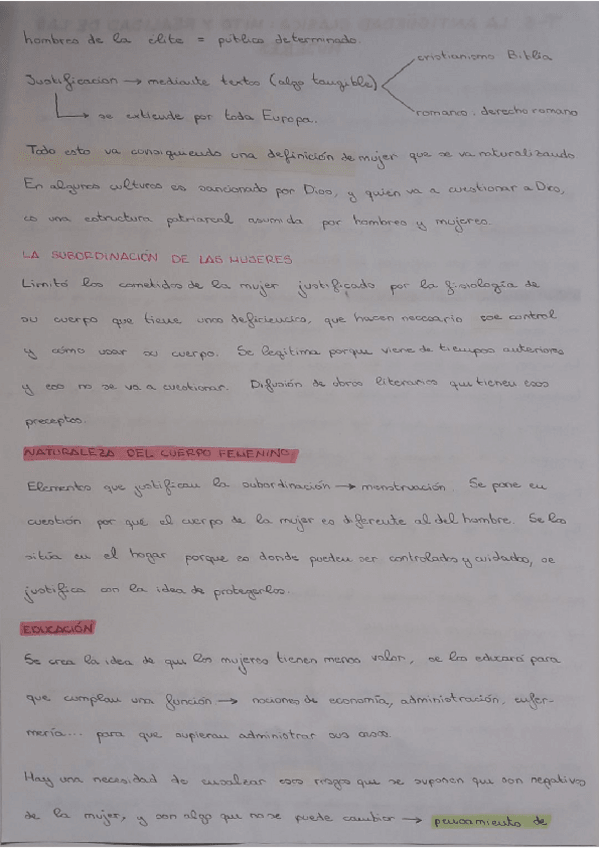 hombres de la élite = público determinado.
cristianismo Biblia
Justificación → mediante textos (algo tangible)
romanos. derecho romano
→ se extiende por toda Europa.
Todo esto va consiguiendo una definición de mujer que se va naturalizando
En algunas culturas es sancionado por Dios, y quién va a cuestionar a Dios,
es una estructura patriarcal asumida por hombres y mujeres.
LA SUBORDINACIÓN DE LAS MUJERES
Limitó los cometidos de la mujer justificado por la fisiología de
su cuerpo que tiene unas deficiencias, que hacen necesario ese control
y cómo usar su cuerpo. Se legitima porque viene de tiempos anteriores
y eso no se va a cuestionar. Difusión de obras literarias que tienen esos
preceptos.
NATURALEZA DEL CUERPO FEMENINO
Elementos que justifican la subordinación → menstruación. Se pone en
cuestión por qué el cuerpo de la mujer es diferente al del hombre. Se las
sitúa en el hogar porque es donde pueden ser controladas y cuidadas, se
justifica con la idea de protegerlas.
EDUCACIÓN
Se crea la idea de que las mujeres tienen menos valor, se las educará para
que cumplan una función → nociones de economía, administración, enfer-
mería... para que supieran administrar sus casas.
Hay una necesidad de ensalzar esos rasgos que se suponen que son negativos
de la mujer, y son algo que no se puede cambiar → pensamiento de